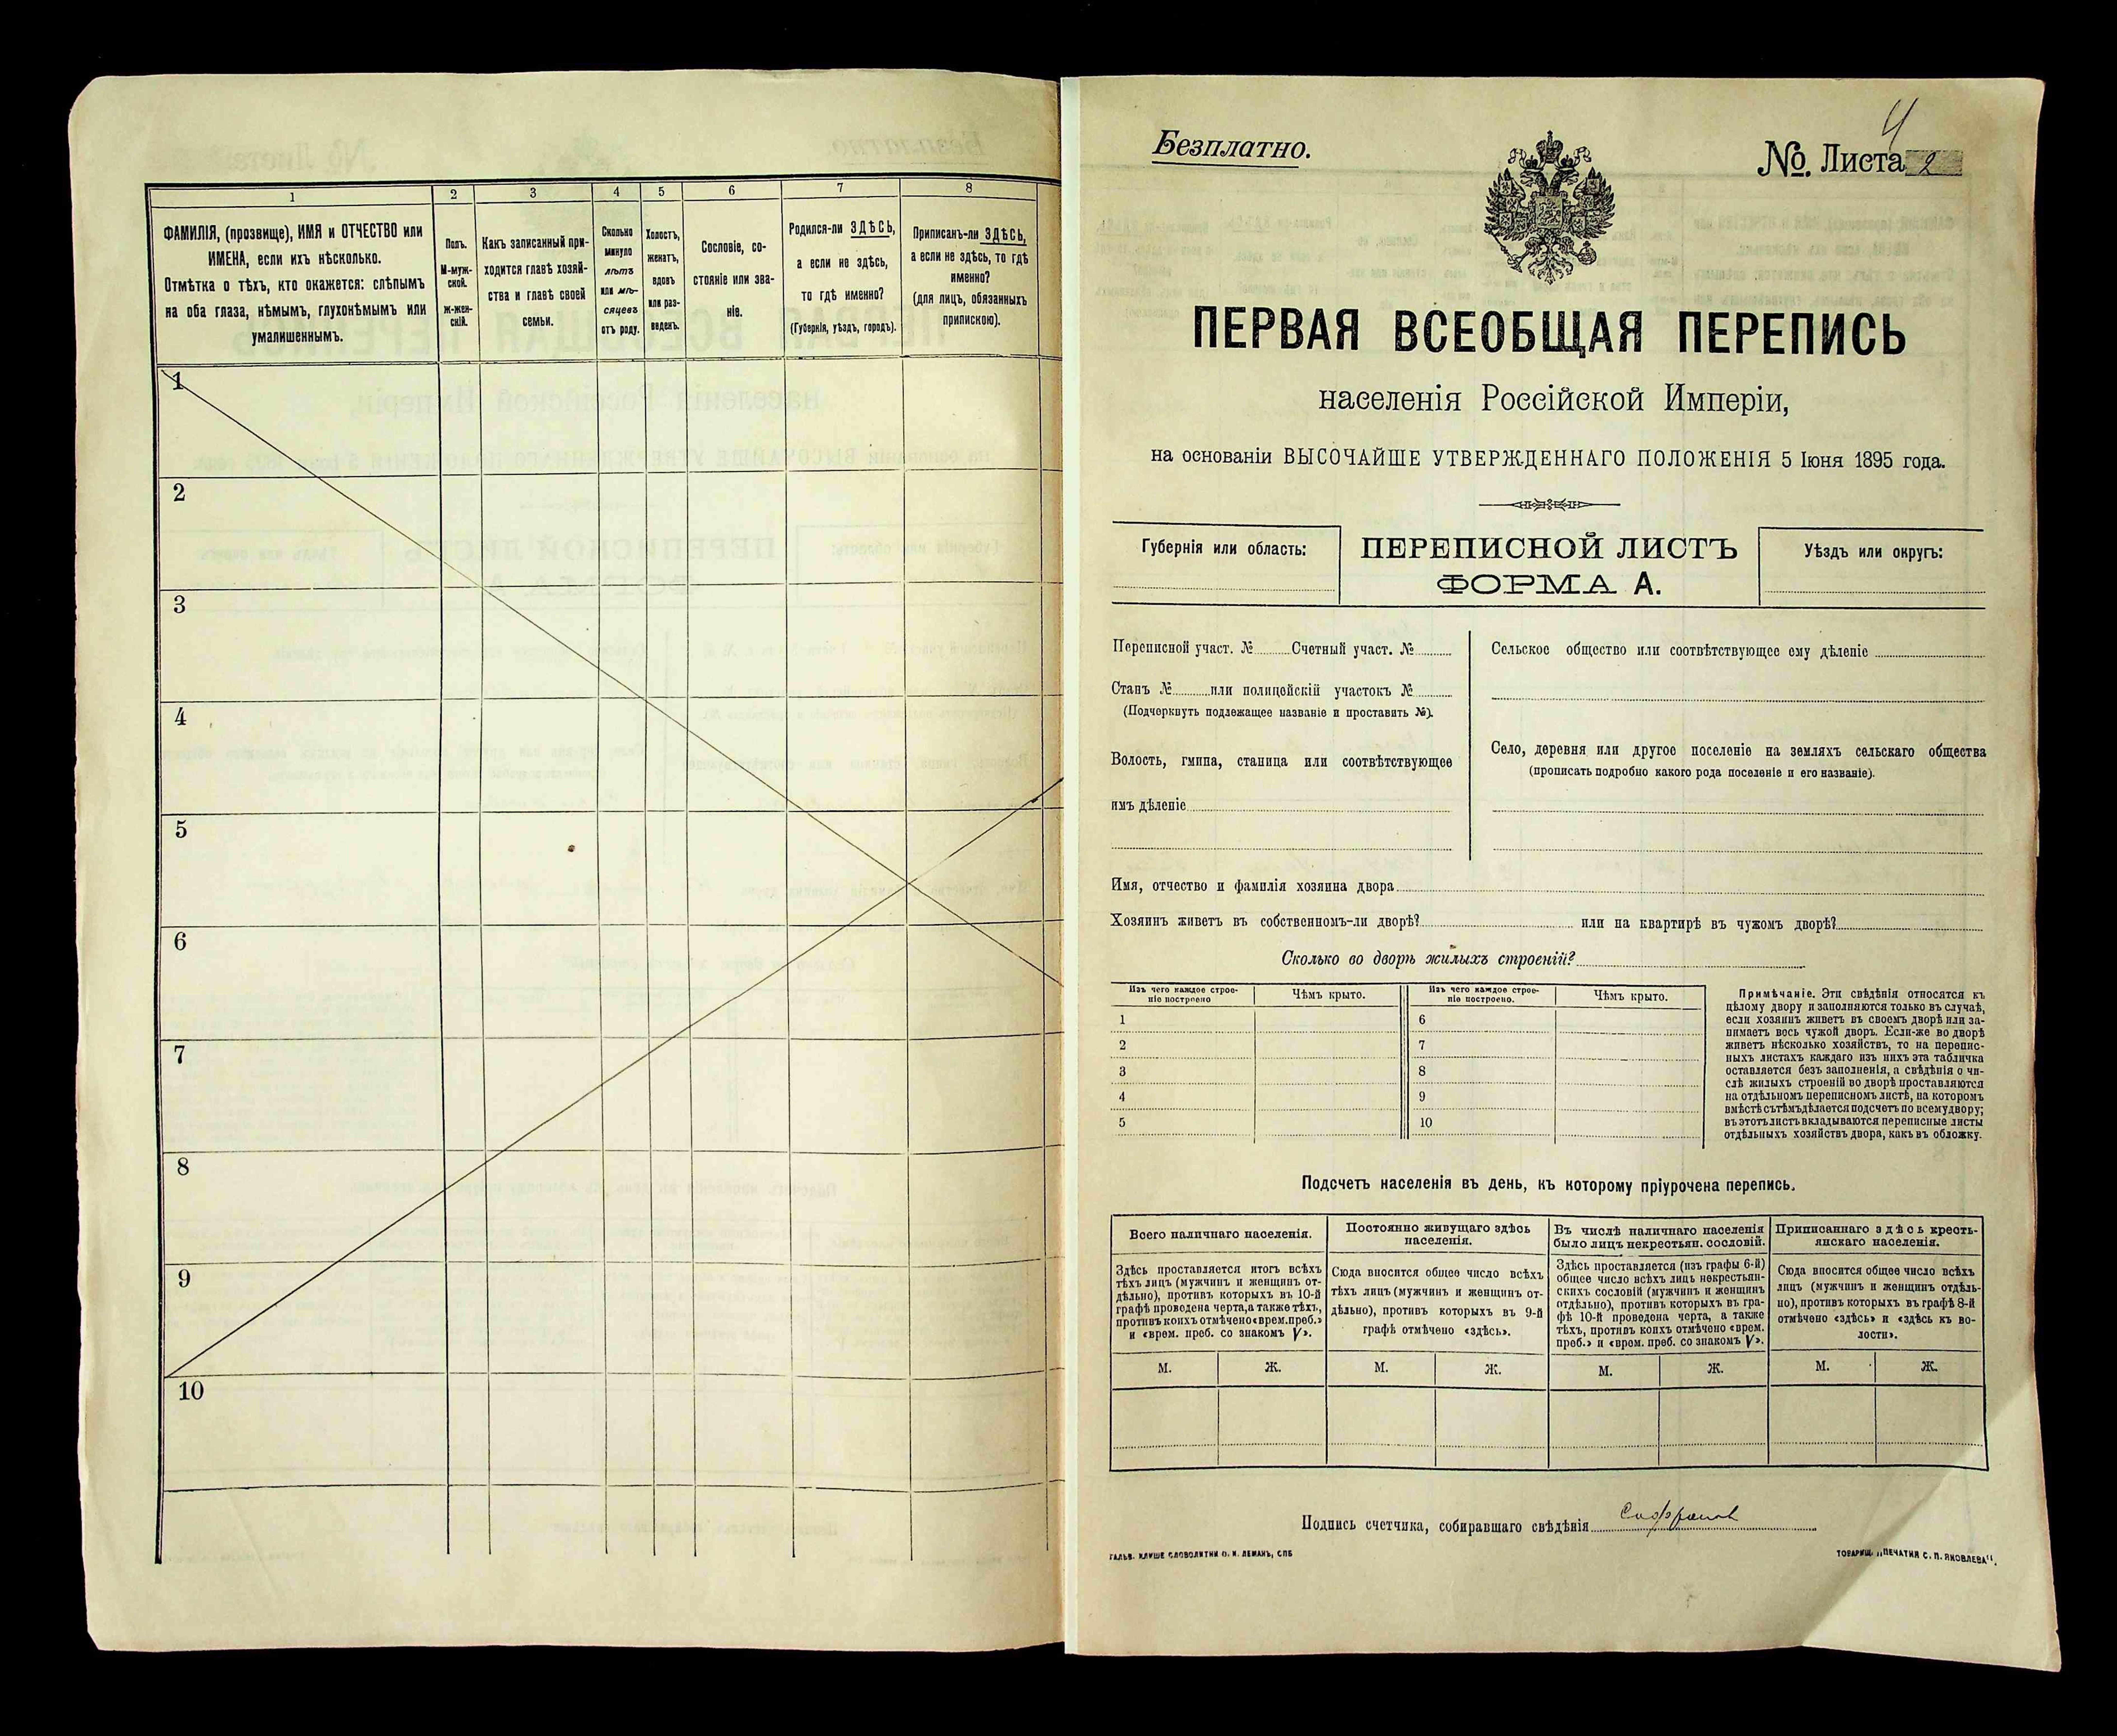 1
2
3
4
5
6
7
8
ФАМИЛІЯ, (прозвище), ИМЯ и ОТЧЕСТВО или
ИМЕНА, если ихъ нѣсколько.
Отмѣтка о тѣхъ, кто окажется: слѣпымъ
на оба глаза, нѣмымъ, глухонѣмымъ или
умалишеннымъ.
Полъ.
М-муж-
ской.
Ж-жен-
скій.
Какъ записанный при-
ходится главѣ хозяй-
ства и главѣ своей
семьи.
Сколько
минуло
лѣтъ
или мѣ-
сяцевъ
отъ роду.
Холостъ,
женатъ,
вдовъ
или раз-
веденъ.
Сословіе, со-
стояніе или зва-
ніе.
Родился-ли ЗДѢСЬ,
а если не здѣсь,
то гдѣ именно?
(Губернія, уѣздъ, городъ).
Приписанъ-ли ЗДѢСЬ,
а если не здѣсь, то гдѣ
именно?
(для лицъ, обязанныхъ
припискою).
1
2
3
4
5
6
7
8
9
10
4
Безплатно.
№. Листа 2
ПЕРВАЯ ВСЕОБЩАЯ ПЕРЕПИСЬ
населенія Россійской Имперіи,
на основаніи ВЫСОЧАЙШЕ УТВЕРЖДЕННАГО ПОЛОЖЕНІЯ 5 Іюня 1895 года.
Губернія или область:
ПЕРЕПИСНОЙ ЛИСТЪ
ФОРМА А.
Уѣздъ или округъ:
Переписной участ. № Счетный участ. №
Станъ № или полицейскій участокъ №
(Подчеркнуть подлежащее названіе и проставить №).
Волость, гмина, станица или соотвѣтствующее
имъ дѣленіе
Сельское общество или соотвѣтствующее ему дѣленіе
Село, деревня или другое поселеніе на земляхъ сельскаго общества
(прописать подробно какого рода поселеніе и его названіе).
Имя, отчество и фамилія хозяина двора
Хозяинъ живетъ въ собственномъ-ли дворѣ? или на квартирѣ въ чужомъ дворѣ?
Сколько во дворѣ жилыхъ строеній?
Изъ чего каждое строе-
ніе построено
Чѣмъ крыто.
Изъ чего каждое строе-
ніе построено.
Чѣмъ крыто.
1
2
3
4
5
6
7
8
9
10
Примѣчаніе. Эти свѣдѣнія относятся къ
цѣлому двору и заполняются только въ случаѣ,
если хозяинъ живетъ въ своемъ дворѣ или за-
нимаетъ весь чужой дворъ. Если-же во дворѣ
живетъ нѣсколько хозяйствъ, то на перепис-
ныхъ листахъ каждаго изъ нихъ эта табличка
оставляется безъ заполненія, а свѣдѣнія о чи-
слѣ жилыхъ строеній во дворѣ проставляются
на отдѣльномъ переписномъ листѣ, на которомъ
вмѣстѣ съ тѣмъ дѣлается подсчетъ по всему двору;
въ этотъ листъ вкладываются переписные листы
отдѣльныхъ хозяйствъ двора, какъ въ обложку.
Подсчетъ населенія въ день, къ которому пріурочена перепись.
Всего наличнаго населенія.
Постоянно живущаго здѣсь
населенія.
Въ числѣ наличнаго населенія
было лицъ некрестьян. сословій.
Приписаннаго здѣсь кресть-
янскаго населенія.
Здѣсь проставляется итогъ всѣхъ
тѣхъ лицъ (мужчинъ и женщинъ от-
дѣльно), противъ которыхъ въ 10-й
графѣ проведена черта, а также тѣхъ,
противъ коихъ отмѣчено «врем. преб.»
и «врем. преб. со знакомъ V».
Сюда вносится общее число всѣхъ
тѣхъ лицъ (мужчинъ и женщинъ от-
дѣльно), противъ которыхъ въ 9-й
графѣ отмѣчено «здѣсь».
Здѣсь проставляется (изъ графы 6-й)
общее число всѣхъ лицъ некрестьян-
скихъ сословій (мужчинъ и женщинъ
отдѣльно), противъ которыхъ въ гра-
фѣ 10-й проведена черта, а также
тѣхъ, противъ коихъ отмѣчено «врем.
преб.» и «врем. преб. со знакомъ V».
Сюда вносится общее число всѣхъ
лицъ (мужчинъ и женщинъ отдѣль-
но), противъ которыхъ въ графѣ 8-й
отмѣчено «здѣсь» и «здѣсь къ во-
лости».
М.
Ж.
М.
Ж.
М.
Ж.
М.
Ж.
Подпись счетчика, собиравшаго свѣдѣнія
ГАЛЬВ. КЛИШЕ СЛОВОЛИТНИ О. И. ЛЕМАНЪ, СПБ
ТОВАРИЩ. „ПЕЧАТНЯ С. П. ЯКОВЛЕВА".